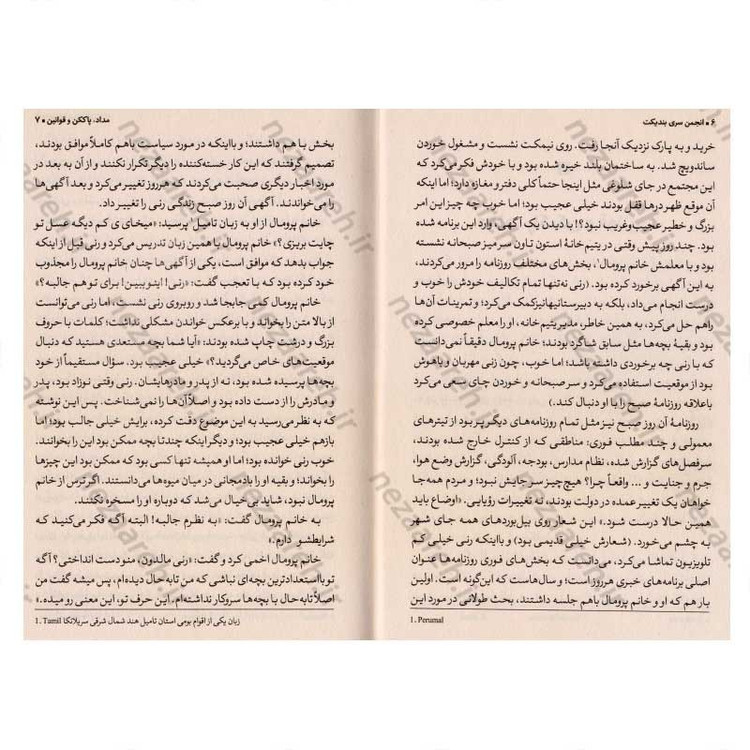 ۶ • انجمن سری بندیکت
خرید و به پارک نزدیک آنجا رفت. روی نیمکت نشست و مشغول خوردن
ساندویچ شد. به ساختمان بلند خیره شده بود و با خودش فکر می‌کرد که
این مجتمع در جای شلوغی مثل اینجا حتماً کلی دفتر و مغازه دارد؛ اما اینکه
آن موقع ظهر درها قفل بودند خیلی عجیب بود؛ اما خوب چه چیز این امر
بزرگ و خطیر عجیب‌وغریب نبود؟! با دیدن یک آگهی، وارد این برنامه شده
بود. چند روز پیش وقتی در یتیم‌خانهٔ استون تاون سر میز صبحانه نشسته
بود و با معلمش خانم پرومال¹، بخش‌های مختلف روزنامه را مرور می‌کردند،
به این آگهی برخورد کرده بود. (رنی نه‌تنها تمام تکالیف خودش را خوب و
درست انجام می‌داد، بلکه به دبیرستانیها نیز کمک می‌کرد؛ و تمرینات آن‌ها
را هم حل می‌کرد، به همین خاطر، مدیر یتیم خانه، او را معلم خصوصی کرده
بود و بقیهٔ بچه‌ها مثل سابق شاگرد بودند؛ خانم پرومال دقیقاً نمی‌دانست
که با رنی چه برخوردی داشته باشد؛ اما خوب، چون زنی مهربان و باهوش
بود از موقعیت استفاده می‌کرد و سر صبحانه و خوردن چای سعی می‌کرد
باعلاقه روزنامهٔ صبح را با او دنبال کند.)
روزنامهٔ آن روز صبح نیز مثل تمام روزنامه‌های دیگر پر بود از تیترهای
معمولی و چند مطلب فوری: مناطقی که از کنترل خارج شده بودند،
سرفصل‌های گزارش شده، نظام مدارس، بودجه، آلودگی، گزارش وضع هوا،
جرم و جنایت و ... واقعاً چرا؟ هیچ‌چیز سر جایش نبود؛ و مردم همه‌جا
خواهان یک تغییر عمده در دولت بودند، نه تغییرات رؤیایی. «اوضاع باید
همین حالا درست شود.» این شعار روی بیل‌بوردهای همه جای شهر
به چشم می‌خورد. (شعارش خیلی قدیمی بود) و بااینکه رنی خیلی کم
تلویزیون تماشا می‌کرد، می‌دانست که بخش‌های فوری روزنامه‌ها عنوان
اصلی برنامه‌های خبری هرروز است؛ و سال‌هاست که این‌گونه است. اولین
بار هم که او و خانم پرومال باهم جلسه داشتند، بحث طولانی در مورد این
1. Perumal
مداد، پاک‌کن و قوانین • ۷
بخش با هم داشتند؛ و بااینکه در مورد سیاست باهم کاملاً موافق بودند،
تصمیم گرفتند که این کار خسته‌کننده را دیگر تکرار نکنند و از آن به بعد در
مورد اخبار دیگری صحبت می‌کردند که هرروز تغییر می‌کرد و بعد آگهی‌ها
را می‌خواندند. آگهی آن روز صبح زندگی رنی را تغییر داد.
خانم پرومال از او به زبان تامیل¹ پرسید: «میخای ی کم دیگه عسل تو
چایت بریزی؟» خانم پرومال با همین زبان تدریس می‌کرد و قبل از اینکه
جواب بدهد که موافق است، یکی از آگهی‌ها چنان خانم پرومال را مجذوب
خود کرده بود که با تعجب گفت: «رنی! اینو ببین! برای تو هم جالبه؟»
خانم پرومال کمی جابجا شد و روبروی رنی نشست، اما رنی می‌توانست
از بالا متن را بخواند و با برعکس خواندن مشکلی نداشت؛ کلمات با حروف
بزرگ و درشت چاپ شده بودند: «آیا شما بچه مستعدی هستید که دنبال
موقعیت‌های خاص می‌گردید؟» خیلی عجیب بود. سؤال مستقیماً از خود
بچه‌ها پرسیده شده بود، نه از پدر و مادرهایشان. رنی وقتی نوزاد بود، پدر
و مادرش را از دست داده بود و اصلاً آن‌ها را نمی‌شناخت. پس این نوشته
که به نظر می‌رسید به این موضوع دقت کرده، برایش خیلی جالب بود؛ اما
بازهم خیلی عجیب بود؛ و دیگر اینکه چندتا بچه ممکن بود این را بخوانند.
خوب رنی خوانده بود؛ اما او همیشه تنها کسی بود که ممکن بود این چیزها
را بخواند؛ و بقیه او را بادمجانی در میان میوه‌ها می‌دانستند. اگر ترس از خانم
پرومال نبود، شاید بی خیال می‌شد که دوباره او را مسخره نکنند.
به خانم پرومال گفت: «به نظرم جالبه! البته آگه فکر می‌کنید که
شرایطشو دارم.»
خانم پرومال اخمی کرد و گفت: «رنی مالدون، منو دست انداختی؟ آگه
تو بااستعدادترین بچه‌ای نباشی که من تا به حال دیده‌ام، پس میشه گفت من
اصلاً تابه‌حال با بچه‌ها سروکار نداشته‌ام. این حرف تو، این معنی رو میده.»
1. Tamil زبان یکی از اقوام بومی استان تامیل هند شمال شرقی سریلانکا
nezaareh.ir